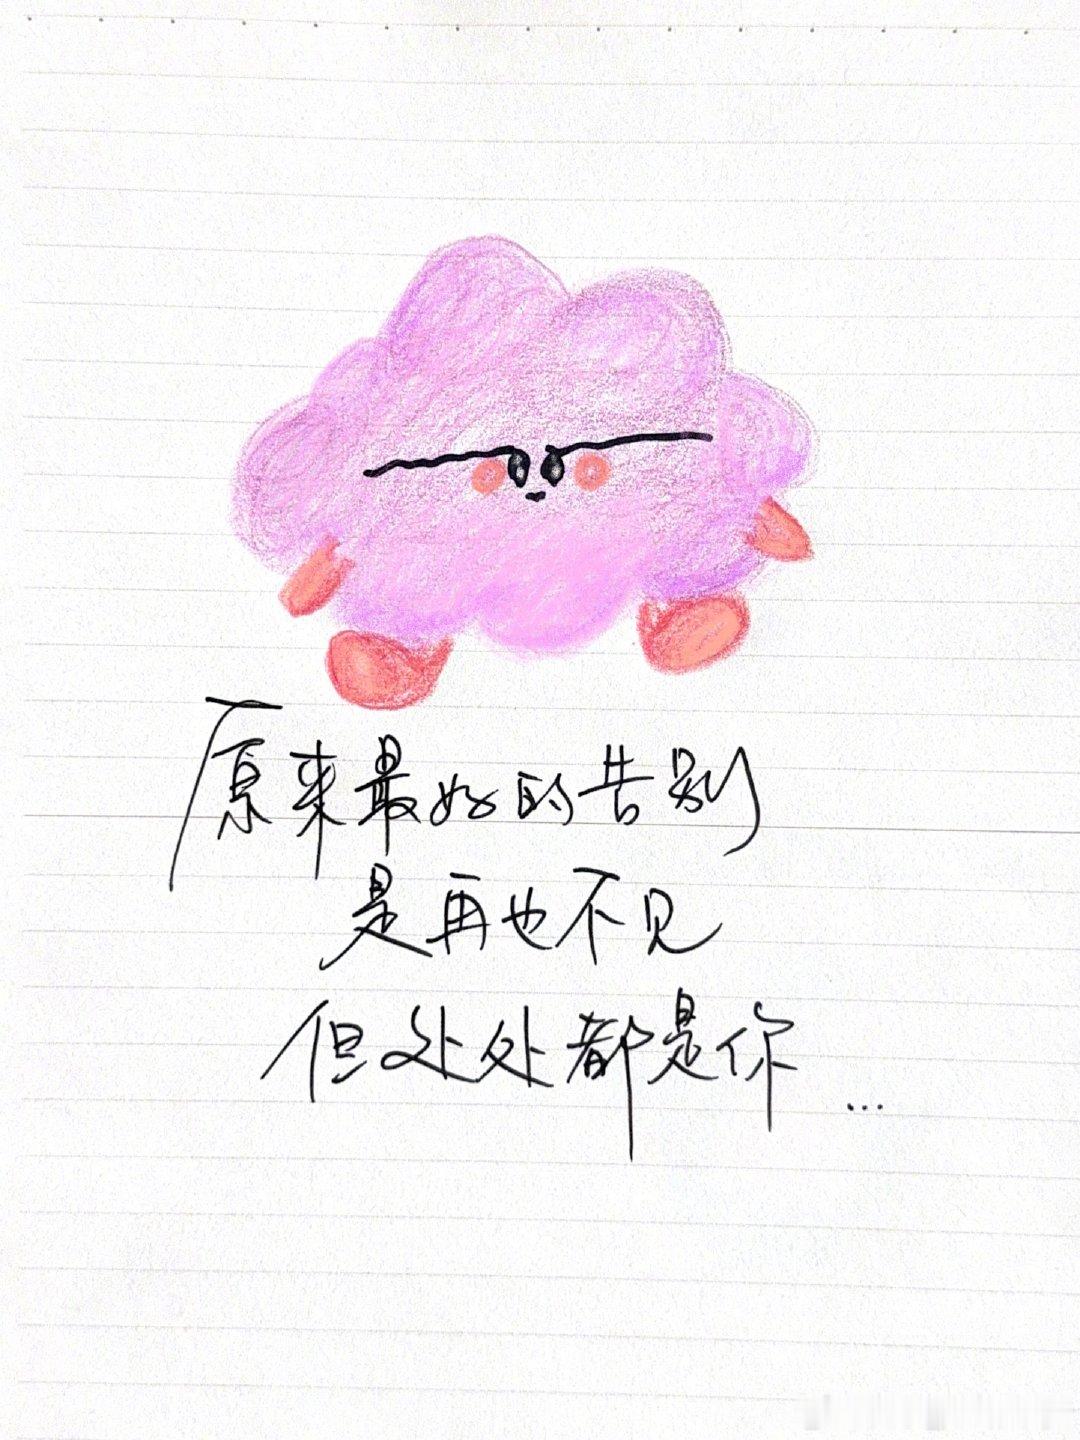 原来最好的告别
是再也不见
但处处都是你...